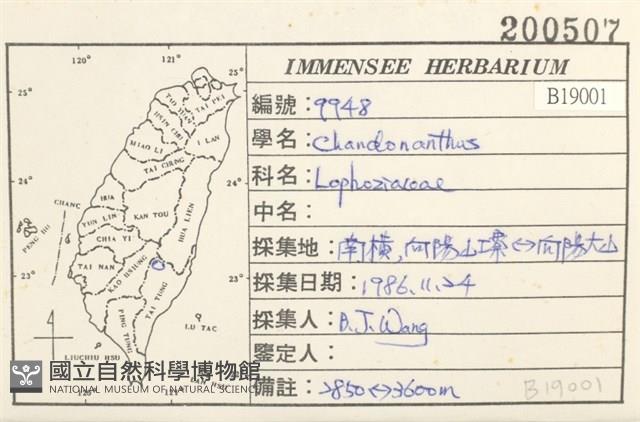 200507
IMMENSEE HERBARIUM
B19001
編號：9948
學名：Chandonanthus
科名：Lophoziaceae
中名：
採集地：南橫，向陽山工寮↔向陽大山
採集日期：1986.11.24
採集人：B.J.Wang
鑒定人：
備註：2850↔3600m
B19001
120° 121°
25° 25°
TAO YUAN
TAI PEI
HSIN CHU
I LAN
MIAO LI
TAI CHUNG
24° 24°
CHANG HUA
NAN TOU
HUA LIEN
YUN LIN
PENG HU
CHIA YI
TAI NAN
KAO HSIUNG
23° 23°
TAI TUNG
PING TUNG
LU TAO
LIUCHIU HSU
LAN HSU
120° 121°
國立自然科學博物館
NATIONAL MUSEUM OF NATURAL SCIENCE